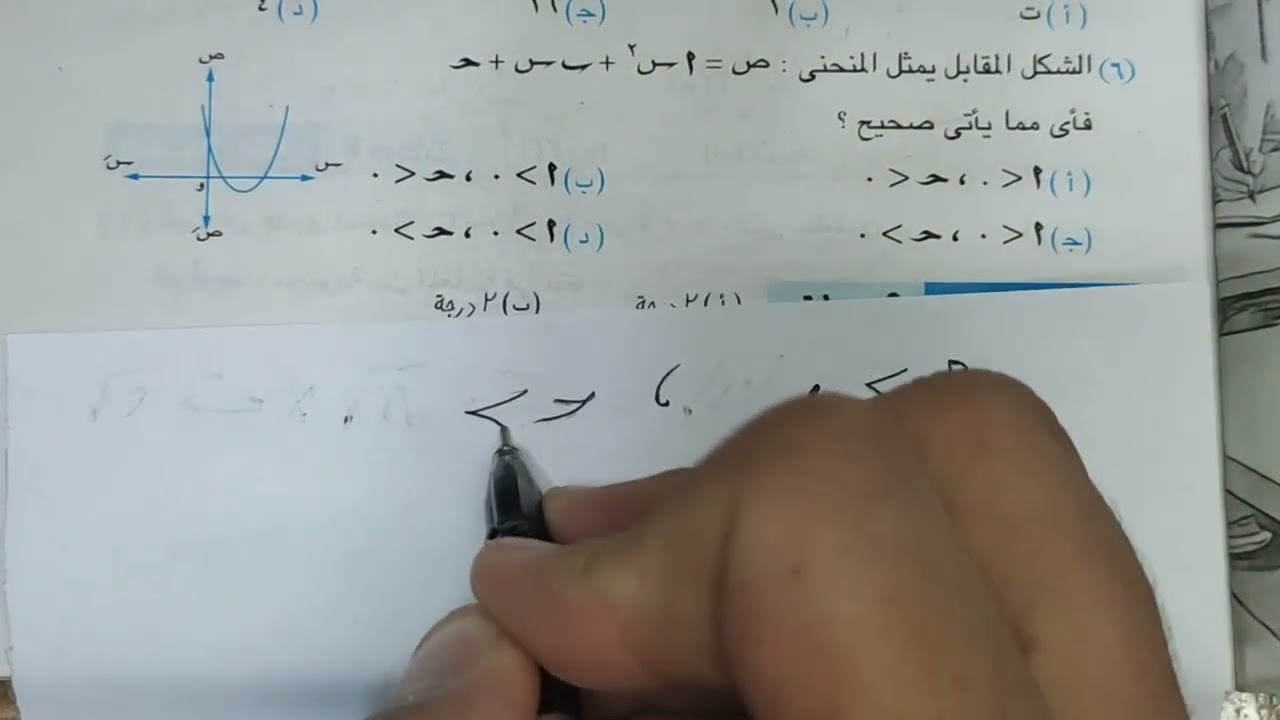 (أ) ت (ب) ١ (جـ) ١١ (د) ٤
(٦) الشكل المقابل يمثل المنحنى : ص = ٩ س٢ + ب س + حـ
فأى مما يأتى صحيح ؟
(أ) ٩ < ٠ ، حـ < ٠ (ب) ٩ > ٠ ، حـ < ٠
(جـ) ٩ < ٠ ، حـ > ٠ (د) ٩ > ٠ ، حـ > ٠
ص
س
سَ
و
صَ
(ب) ٢ درجة
٩ > ٠ ، حـ >